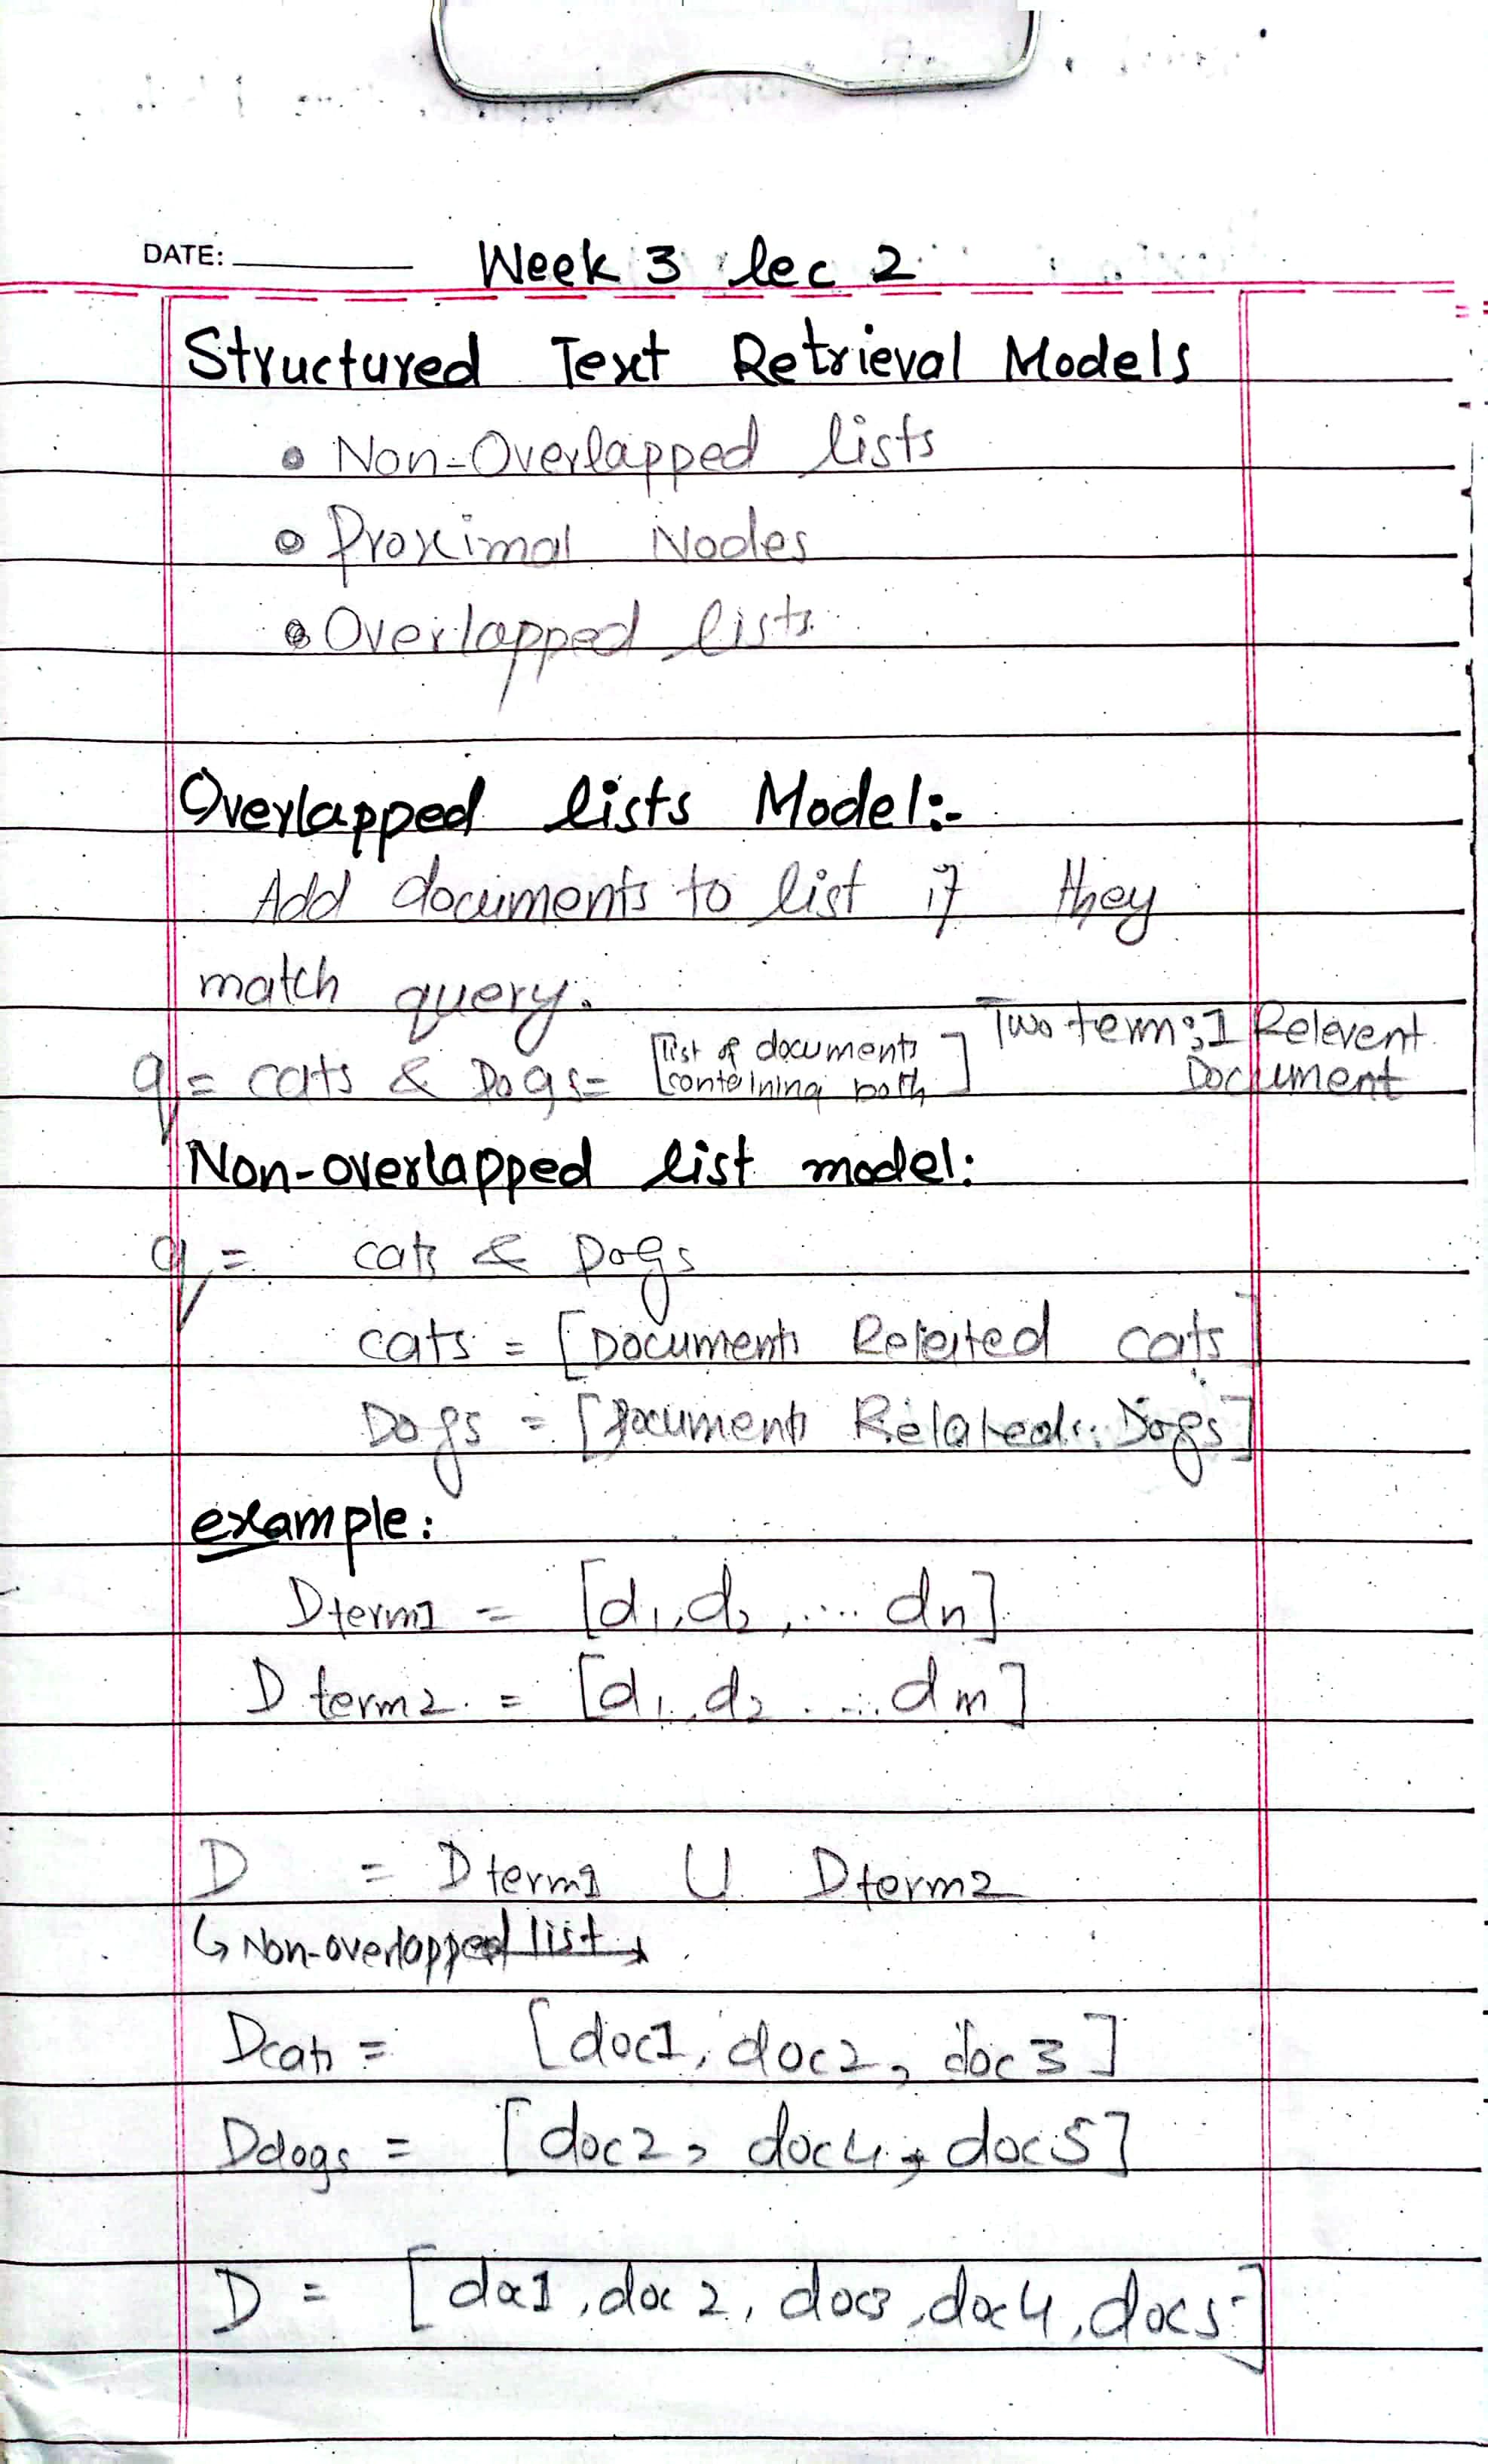 DATE: Week 3 lec 2
Structured Text Retrieval Models
• Non-Overlapped lists
• Proximal Nodes
• Overlapped lists
Overlapped lists Model:-
Add documents to list if they
match query.
q = cats & Dogs = [list of documents containing both] Two term; 1 Relevent Document
Non-overlapped list model:
q = cats & Dogs
cats = [Documents Releited cats]
Dogs = [Documents Related Dogs]
example:
Dterm1 = [d1, d2, .... dn]
Dterm2 = [d1, d2 .... dm]
D = Dterm1 ∪ Dterm2
↳ Non-overlapped list
Dcats = [doc1, doc2, doc3]
Ddogs = [doc2, doc4, doc5]
D = [doc1, doc2, doc3, doc4, doc5]